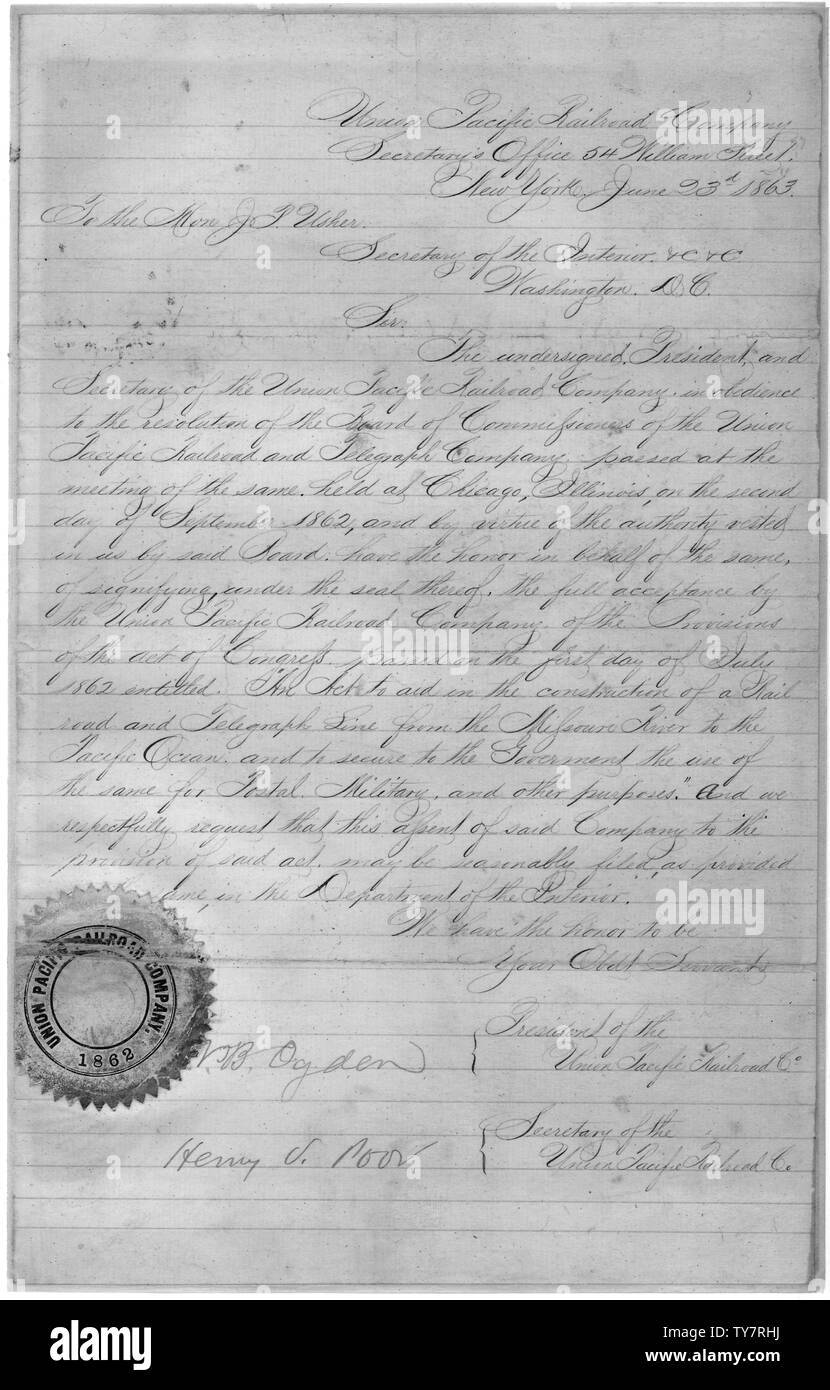 Union Pacific Railroad Company
Secretary's Office 54 William Street.
New York, June 23d 1863.
To the Hon J. P. Usher.
Secretary of the Interior. &C &C
Washington. D.C.
Sir.
The undersigned, President, and
Secretary of the Union Pacific Railroad Company, in obedience
to the resolution of the Board of Commissioners of the Union
Pacific Railroad and Telegraph Company passed at the
meeting of the same, held at Chicago, Illinois, on the second
day of September 1862, and by virtue of the authority vested
in us by said Board. have the honor in behalf of the same,
of signifying, under the seal thereof, the full acceptance by
the Union Pacific Railroad Company, of the Provisions
of the act of Congress. passed on the first day of July
1862 entitled. "An Act to aid in the construction of a Rail
road and Telegraph Line from the Missouri River to the
Pacific Ocean. and to secure to the Goverment the use of
the same for Postal, Military, and other purposes." And we
respectfully request that this assent of said Company to the
provision of said act, may be seasonably filed, as provided
in the Department of the Interior.
We have the honor to be
Your Obdt Servants
W. B. Ogden { President of the
Union Pacific Railroad Co
Henry V. Poor { Secretary of the
Union Pacific Railroad Co.
UNION PACIFIC RAILROAD COMPANY.
1862
alamy
Image ID: TY7RHJ
www.alamy.com